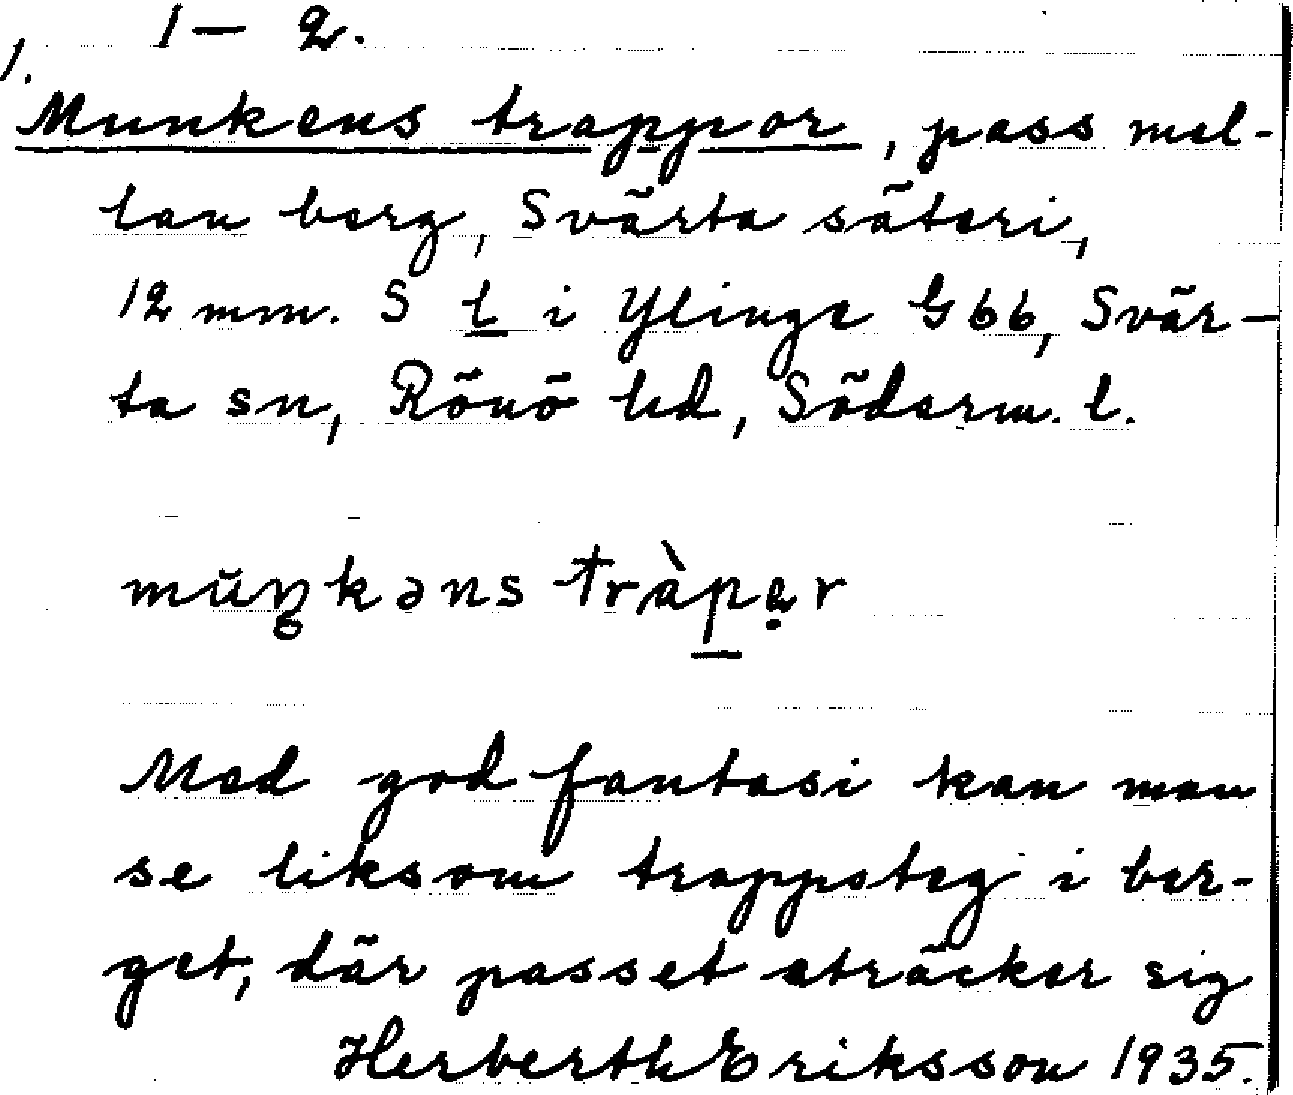 1 – 2.
1.
Munkens trappor, pass mel-
lan berg, Svärta säteri,
12 mm. S l i Ylinge G 66, Svär-
ta sn, Rönö hd, Söderm. l.
mŭŋkəns tràpạr
Med god fantasi kan man
se liksom trappsteg i ber-
get, där passet sträcker sig
Herberth Eriksson 1935.